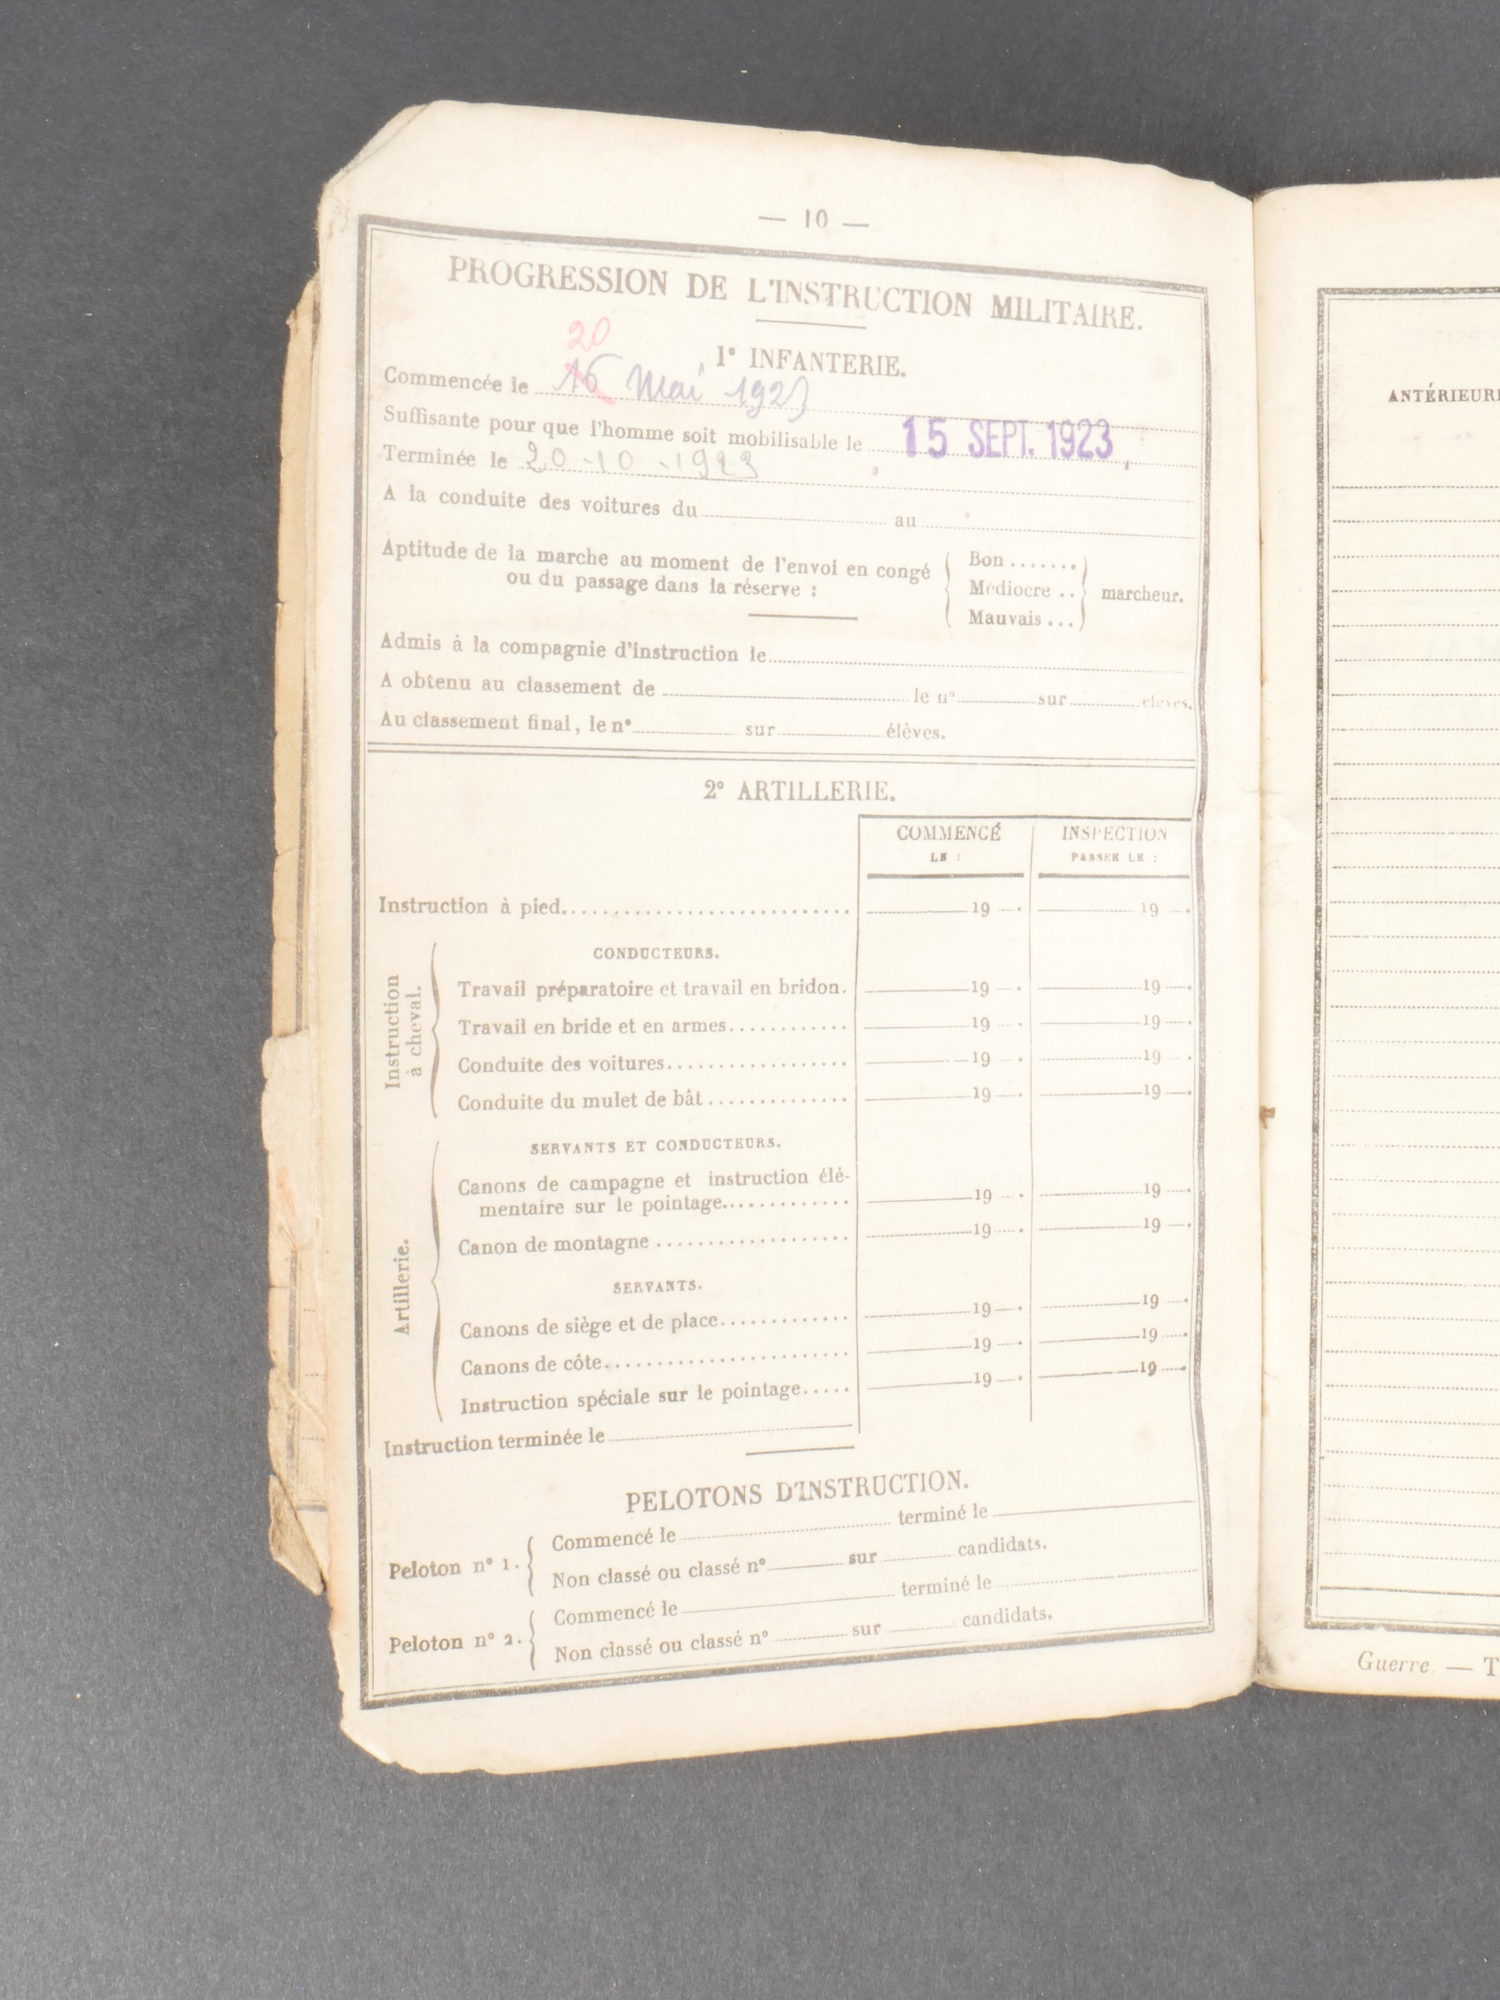 — 10 —
PROGRESSION DE L'INSTRUCTION MILITAIRE.
1° INFANTERIE.
20
Commencée le 16 Mai 1923
Suffisante pour que l'homme soit mobilisable le 15 SEPT. 1923
Terminée le 20-10-1923
A la conduite des voitures du au
Aptitude de la marche au moment de l'envoi en congé
ou du passage dans la réserve :
Bon .......
Médiocre ..
Mauvais ...
marcheur.
Admis à la compagnie d'instruction le
A obtenu au classement de le n° sur élèves.
Au classement final, le n° sur élèves.
2° ARTILLERIE.
COMMENCÉ
LE :
INSPECTION
PASSÉE LE :
Instruction à pied. 19 . 19 .
Instruction
à cheval.
CONDUCTEURS.
Travail préparatoire et travail en bridon. 19 . 19 .
Travail en bride et en armes 19 . 19 .
Conduite des voitures 19 . 19 .
Conduite du mulet de bât 19 . 19 .
Artillerie.
SERVANTS ET CONDUCTEURS.
Canons de campagne et instruction élé-
mentaire sur le pointage 19 . 19 .
Canon de montagne 19 . 19 .
SERVANTS.
Canons de siège et de place 19 . 19 .
Canons de côte 19 . 19 .
Instruction spéciale sur le pointage 19 . 19 .
Instruction terminée le
PELOTONS D'INSTRUCTION.
Peloton n° 1.
Commencé le terminé le
Non classé ou classé n° sur candidats.
Peloton n° 2.
Commencé le terminé le
Non classé ou classé n° sur candidats.
ANTÉRIEUR
Guerre. — T